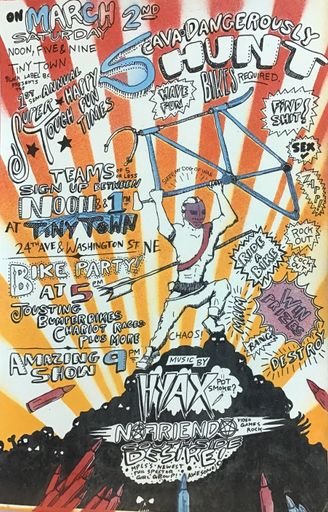 ON MARCH 2ND
SATURDAY
NOON, FIVE & NINE
TINY TOWN
BLACK LABEL BC
PRESENTS
1ST ANNUAL
SUPER HAPPY
TOUGH FUN
TIMES
SCAVA-DANGEROUSLY
HUNT
BIKES REQUIRED.
HAVE FUN!
FIND SHIT!
SEX
TEAMS OF 5 OR LESS
SIGN UP BETWEEN
NOON & 1PM
AT TINY TOWN
24TH AVE & WASHINGTON ST. NE
BIKE PARTY!!
AT 5PM
JOUSTING
BUMPER BIKES
CHARIOT RACES
PLUS MORE
AMAZING
SHOW 9PM
ROCK OUT
RIDE A BIKE
WIN
PRIZES
BANG!
DESTROY
CHAOS!
MUSIC BY
HYAX
POT SMOKE?
NO FRIENDO
VIDEO GAMES ROCK
DESIRE!
MPLS'S NEWEST
PHIL SPECTOR
GIRL GROUP!!
AWESOME!